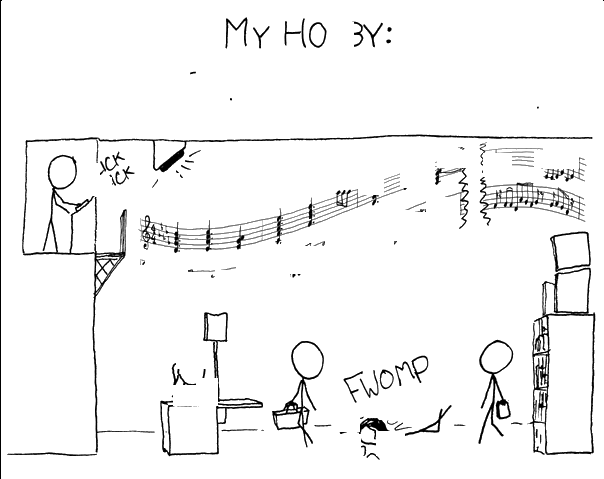 MY HO BY:
ICK
ICK
FWOMP